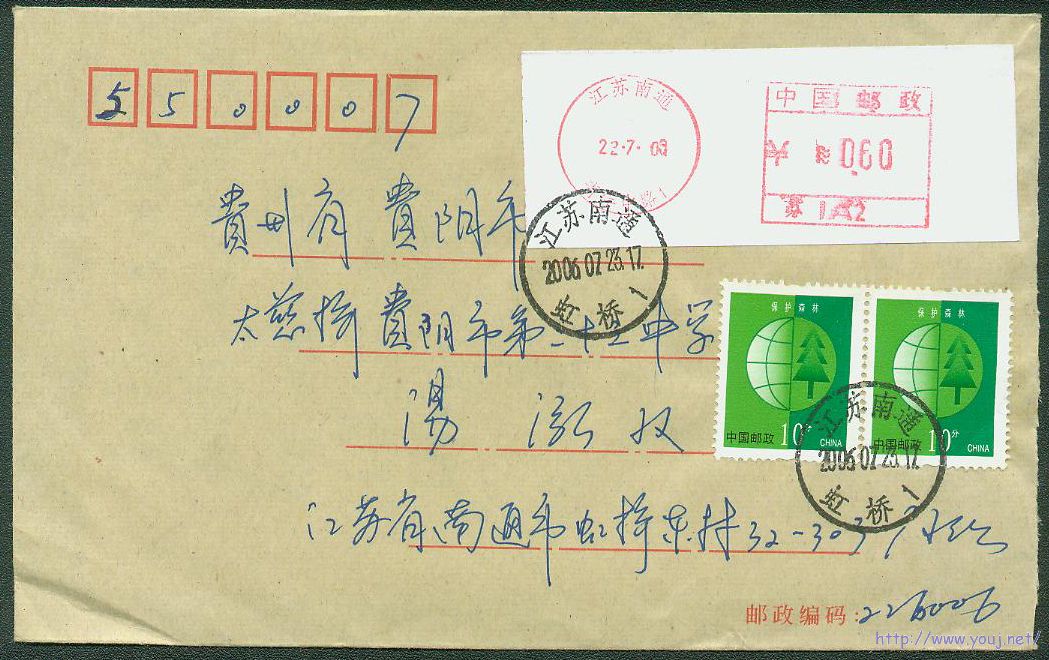 550007
江苏南通
22.7.06
中国邮政
060
苏 1A2
貴州省貴阳市
太慈桥貴阳市第二十五中学
湯 泓 收
江苏南通
2006.07.23.17
虹桥 1
保护森林
中国邮政 10分 CHINA
保护森林
中国邮政 10分 CHINA
江苏南通
2006.07.23.17
虹桥 1
江苏省南通市虹桥东村32-303
邮政编码:226006
http://www.youj.net/